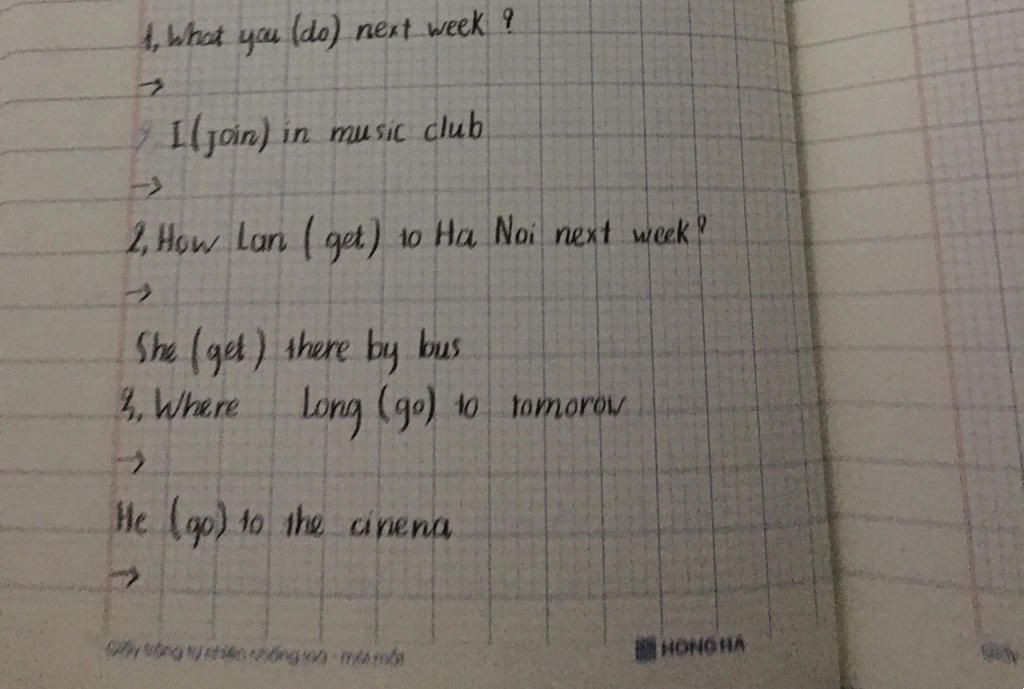 1, What you (do) next week ?
→
I (join) in music club
→
2, How Lan ( get ) to Ha Noi next week?
→
She ( get ) there by bus
3, Where Long (go) to tomorow
→
He (go) to the cinena
→
HONG HA